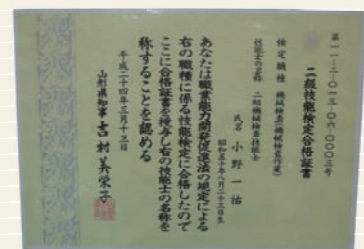 第一一‐二‐〇一三‐〇六‐〇〇〇三号
二級技能検定合格証書
検定職種 機械検査(機械検査作業)
技能士の名称 二級機械検査技能士
氏名 小野一祐
昭和五十年八月二十三日生
あなたは職業能力開発促進法の規定による
右の職種に係る技能検定に合格したので
ここに合格証書を授与し右の技能士の名称を
称することを認める
平成二十四年三月十三日
山形県知事 吉村美栄子